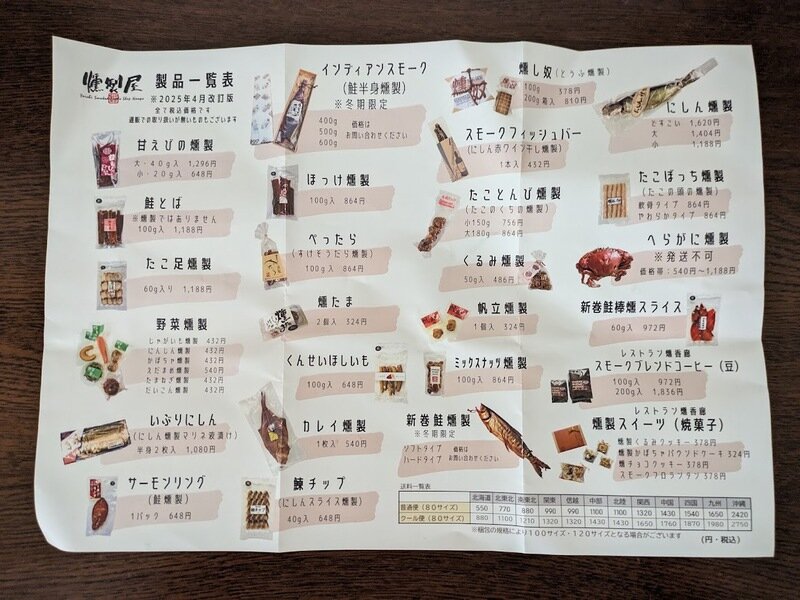 燻製屋 製品一覧表
※2025年4月改訂版
全て税込価格です
通販での取り扱いが無いものもございます
甘えびの燻製
大・40g入 1,296円
小・20g入 648円
鮭とば
※燻製ではありません
100g入 1,188円
たこ足燻製
60g入り 1,188円
野菜燻製
じゃがいも燻製 432円
にんじん燻製 432円
かぼちゃ燻製 432円
えだまめ燻製 540円
たまねぎ燻製 432円
だいこん燻製 432円
いぶりにしん
(にしん燻製マリネ液漬け)
半身2枚入 1,080円
サーモンリング
(鮭燻製)
1パック 648円
インディアンスモーク
(鮭半身燻製)
※冬期限定
400g
500g
600g
価格は
お問い合わせください
ほっけ燻製
100g入 864円
べったら
(すけそうたら燻製)
100g入 864円
燻たま
2個入 324円
くんせいほしいも
100g入 648円
カレイ燻製
1枚入 540円
鰊チップ
(にしんスライス燻製)
40g入 648円
燻し奴(とうふ燻製)
100g 378円
200g箱入 810円
スモークフィッシュバー
(にしん赤ワイン干し燻製)
1本入 432円
たことんび燻製
(たこのくちの燻製)
小150g 756円
大180g 864円
くるみ燻製
50g入 486円
帆立燻製
1個入 324円
ミックスナッツ燻製
100g入 864円
新巻鮭燻製
※冬期限定
ソフトタイプ
ハードタイプ
価格は
お問い合わせください
にしん燻製
どすこい 1,620円
大 1,404円
小 1,188円
たこぼっち燻製
(たこの頭の燻製)
軟骨タイプ 864円
やわらかタイプ 864円
へらがに燻製
※発送不可
価格帯:540円~1,188円
新巻鮭棒燻スライス
60g入 972円
レストラン燻香廊
スモークブレンドコーヒー(豆)
100g入 972円
200g入 1,836円
レストラン燻香廊
燻製スイーツ(焼菓子)
燻製くるみクッキー 378円
燻製かぼちゃパウンドケーキ 324円
燻チョコクッキー 378円
スモークフロランタン 378円
送料一覧表
北海道 北東北 南東北 関東 信越 中部 北陸 関西 中国 四国 九州 沖縄
普通便(80サイズ) 550 770 880 990 990 1100 1100 1320 1430 1540 1650 2420
クール便(80サイズ) 880 1100 1210 1320 1320 1430 1430 1650 1760 1870 1980 2750
※梱包の規格により100サイズ・120サイズとなる場合がございます
(円・税込)